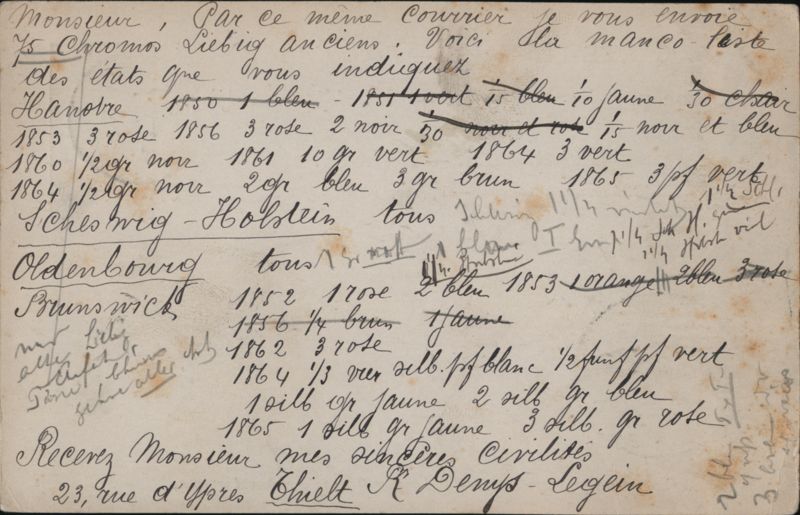 Monsieur, Par ce même courrier je vous envoie
75 Chromos Liebig anciens. Voici la manco-liste
des états que vous indiquez
Hanovre 1850 1 bleu - 1851 1 vert 1/15 bleu 1/10 jaune 1/30 chair
1853 3 rose 1856 3 rose 2 noir 1/30 noir et rose 1/15 noir et bleu
1860 1/2 gr noir 1861 10 gr vert 1864 3 vert
1864 1/2 gr noir 2gr bleu 3 gr brun 1865 3 pf vert
Scheswig-Holstein tous
Oldenbourg tous
Brunswick 1852 1 rose 2 bleu 1853 1 orange 2 bleu 3 rose
1856 1/4 brun 1 jaune
1862 3 rose
1864 1/3 vier silb. pf blanc 1/2 funf pf vert
1 silb gr jaune 2 silb gr bleu
1865 1 silb gr jaune 3 silb. gr rose
Recevez Monsieur mes sincères civilités
23, rue d'Ypres Thielt R Denys-Legein